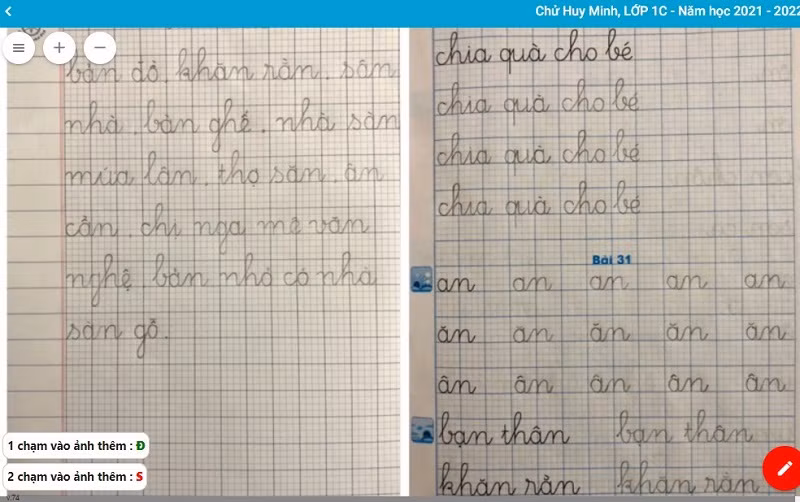 Chử Huy Minh, LỚP 1C - Năm học 2021 - 2022
bản đồ. khăn rằn. sân
nhà. bàn ghế. nhà sàn
múa lân. thợ săn. ân
cần. chị nga mê văn
nghệ bản nhỏ có nhà
sàn gỗ.
1 chạm vào ảnh thêm : Đ
2 chạm vào ảnh thêm : S
chia quà cho bé
chia quà cho bé
chia quà cho bé
chia quà cho bé
Bài 31
an an an an an
ăn ăn ăn ăn ăn
ân ân ân ân ân
bạn thân bạn thân
khăn rằn khăn rằn